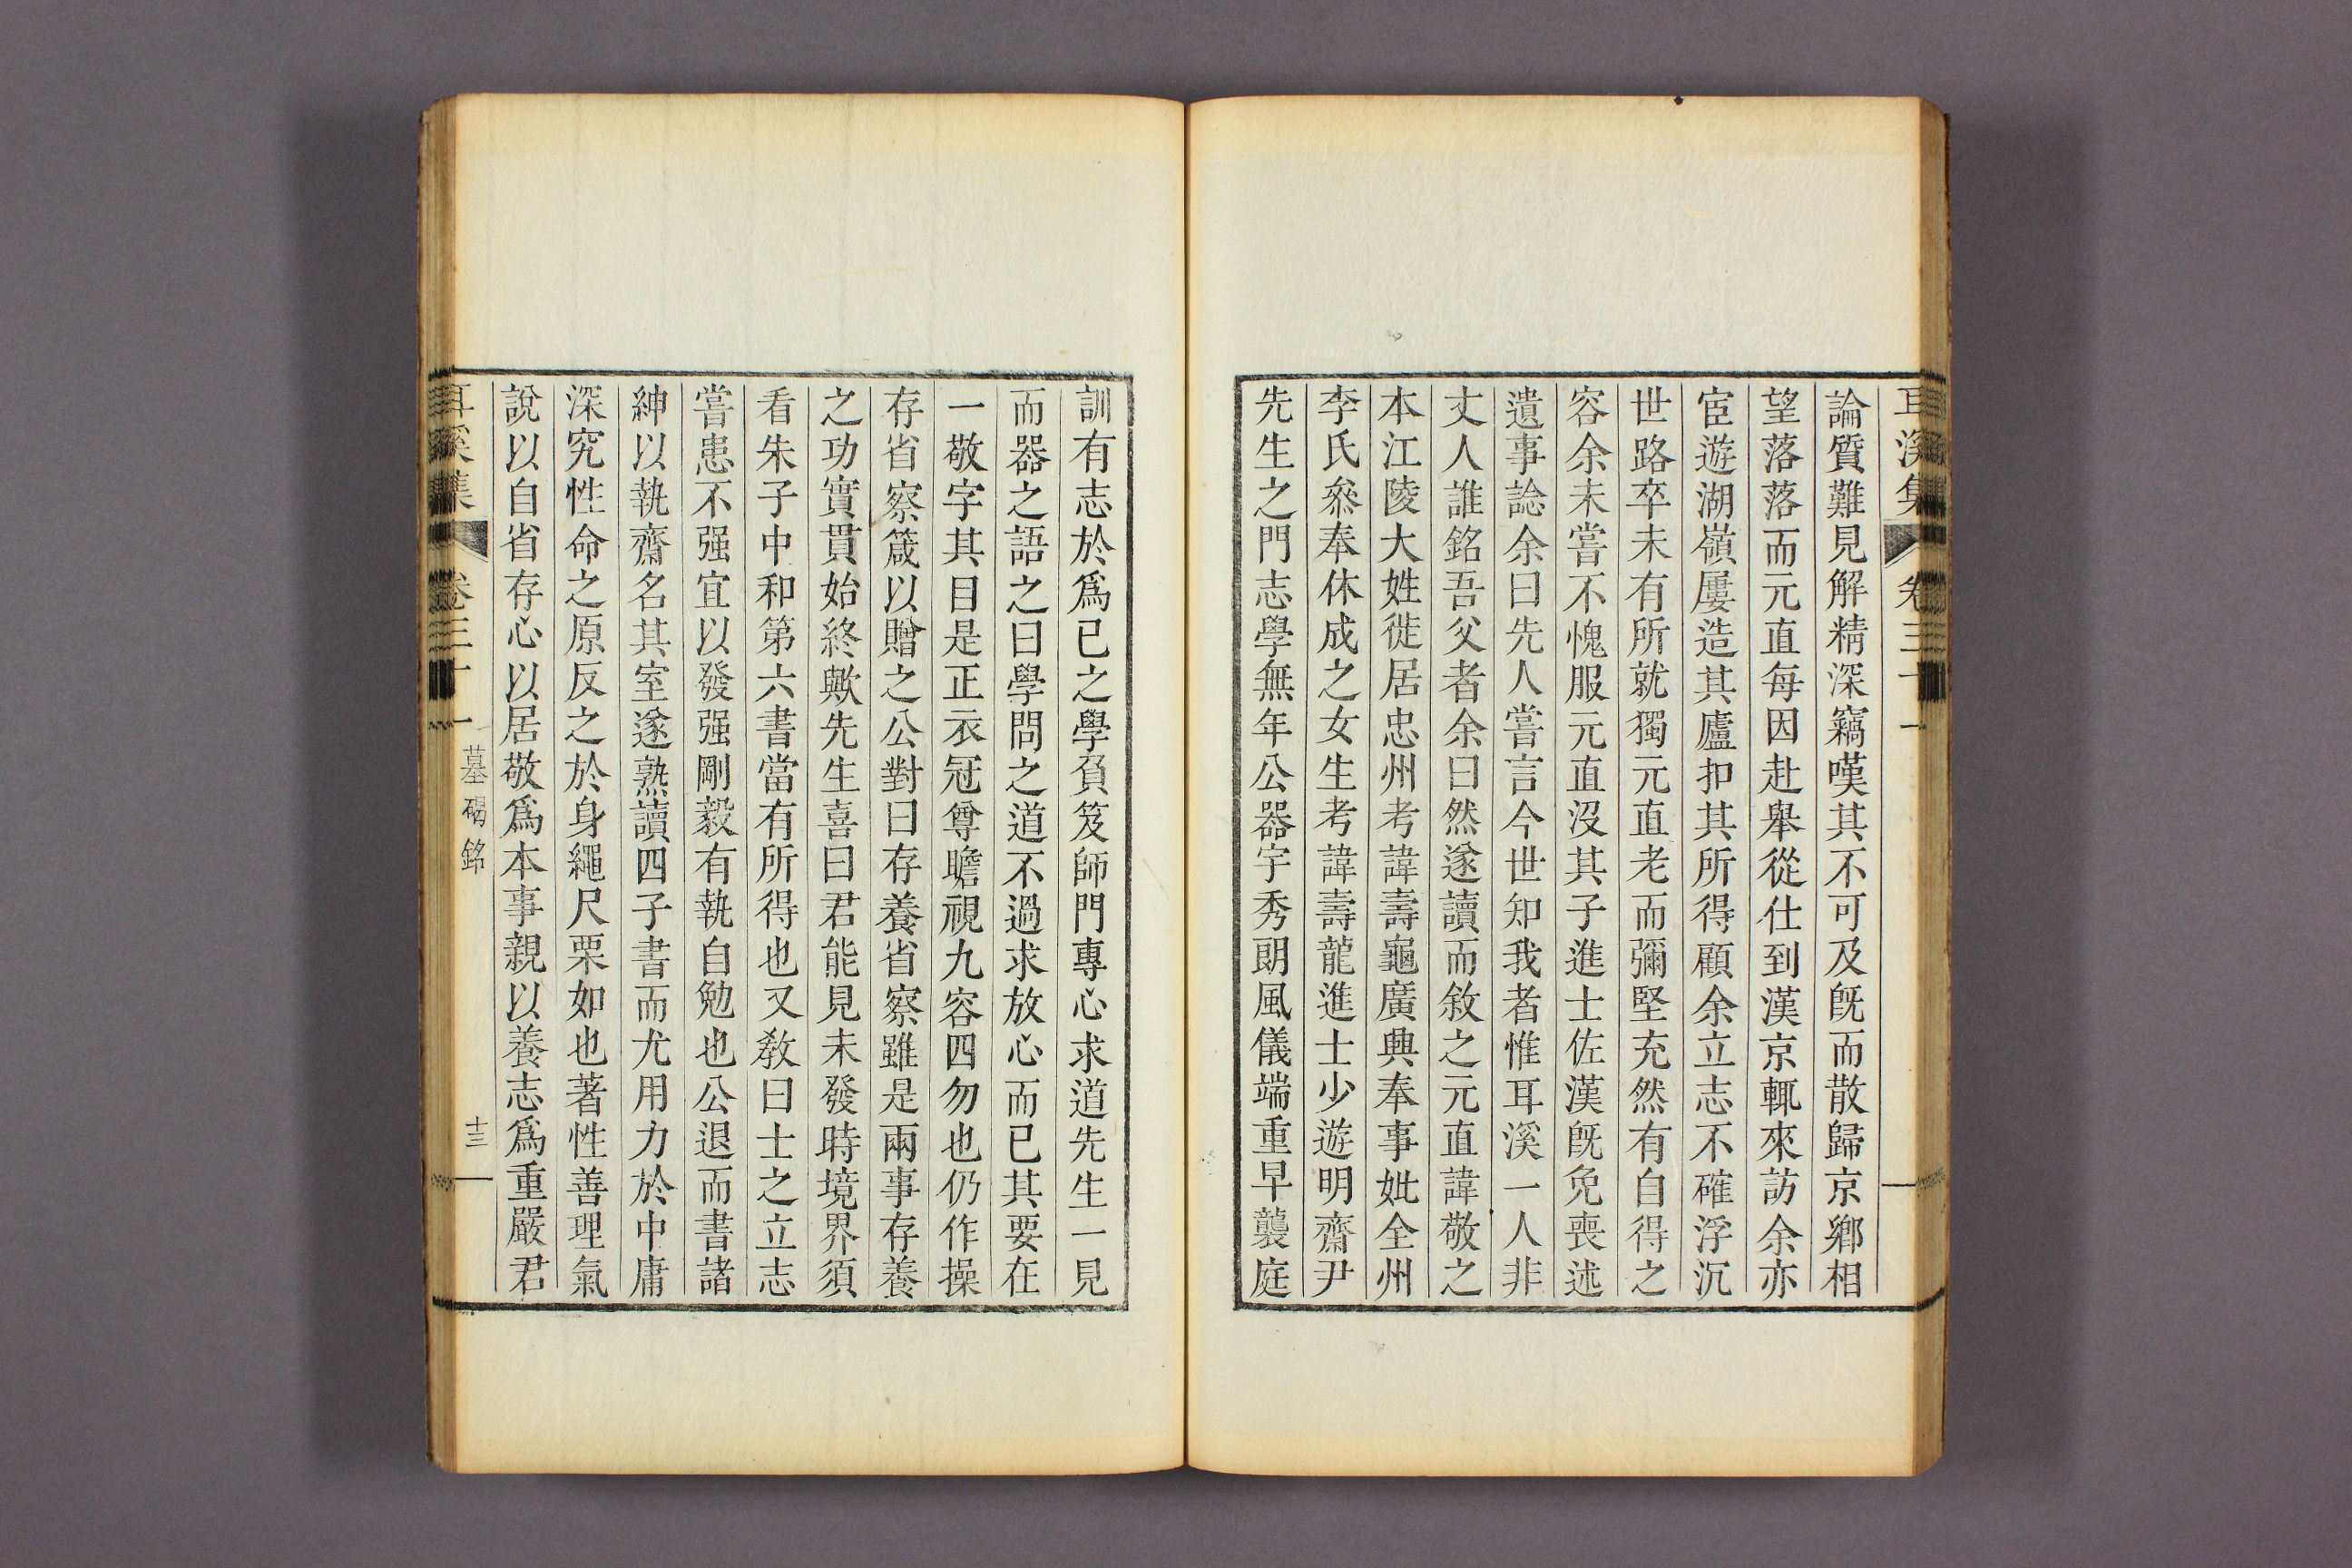 耳溪集 卷三十一
論質難見解精深竊嘆其不可及旣而散歸京鄉相
望落落而元直每因赴舉從仕到漢京輒來訪余亦
宦遊湖嶺屢造其廬扣其所得顧余立志不確浮沉
世路卒未有所就獨元直老而彌堅充然有自得之
容余未嘗不愧服元直沒其子進士佐漢旣免喪述
遺事諗余曰先人嘗言今世知我者惟耳溪一人非
丈人誰銘吾父者余曰然遂讀而敘之元直諱敬之
本江陵大姓徙居忠州考諱壽龜廣興奉事妣全州
李氏叅奉休成之女生考諱壽龍進士少遊明齋尹
先生之門志學無年公器宇秀朗風儀端重早襲庭
訓有志於爲已之學負笈師門專心求道先生一見
而器之語之曰學問之道不過求放心而已其要在
一敬字其目是正衣冠尊瞻視九容四勿也仍作操
存省察箴以贈之公對曰存養省察雖是兩事存養
之功實貫始終歟先生喜曰君能見未發時境界須
看朱子中和第六書當有所得也又敎曰士之立志
嘗患不强宜以發强剛毅有執自勉也公退而書諸
紳以執齋名其室遂熟讀四子書而尤用力於中庸
深究性命之原反之於身繩尺栗如也著性善理氣
說以自省存心以居敬爲本事親以養志爲重嚴君
耳溪集 卷三十一 墓碣銘 十三